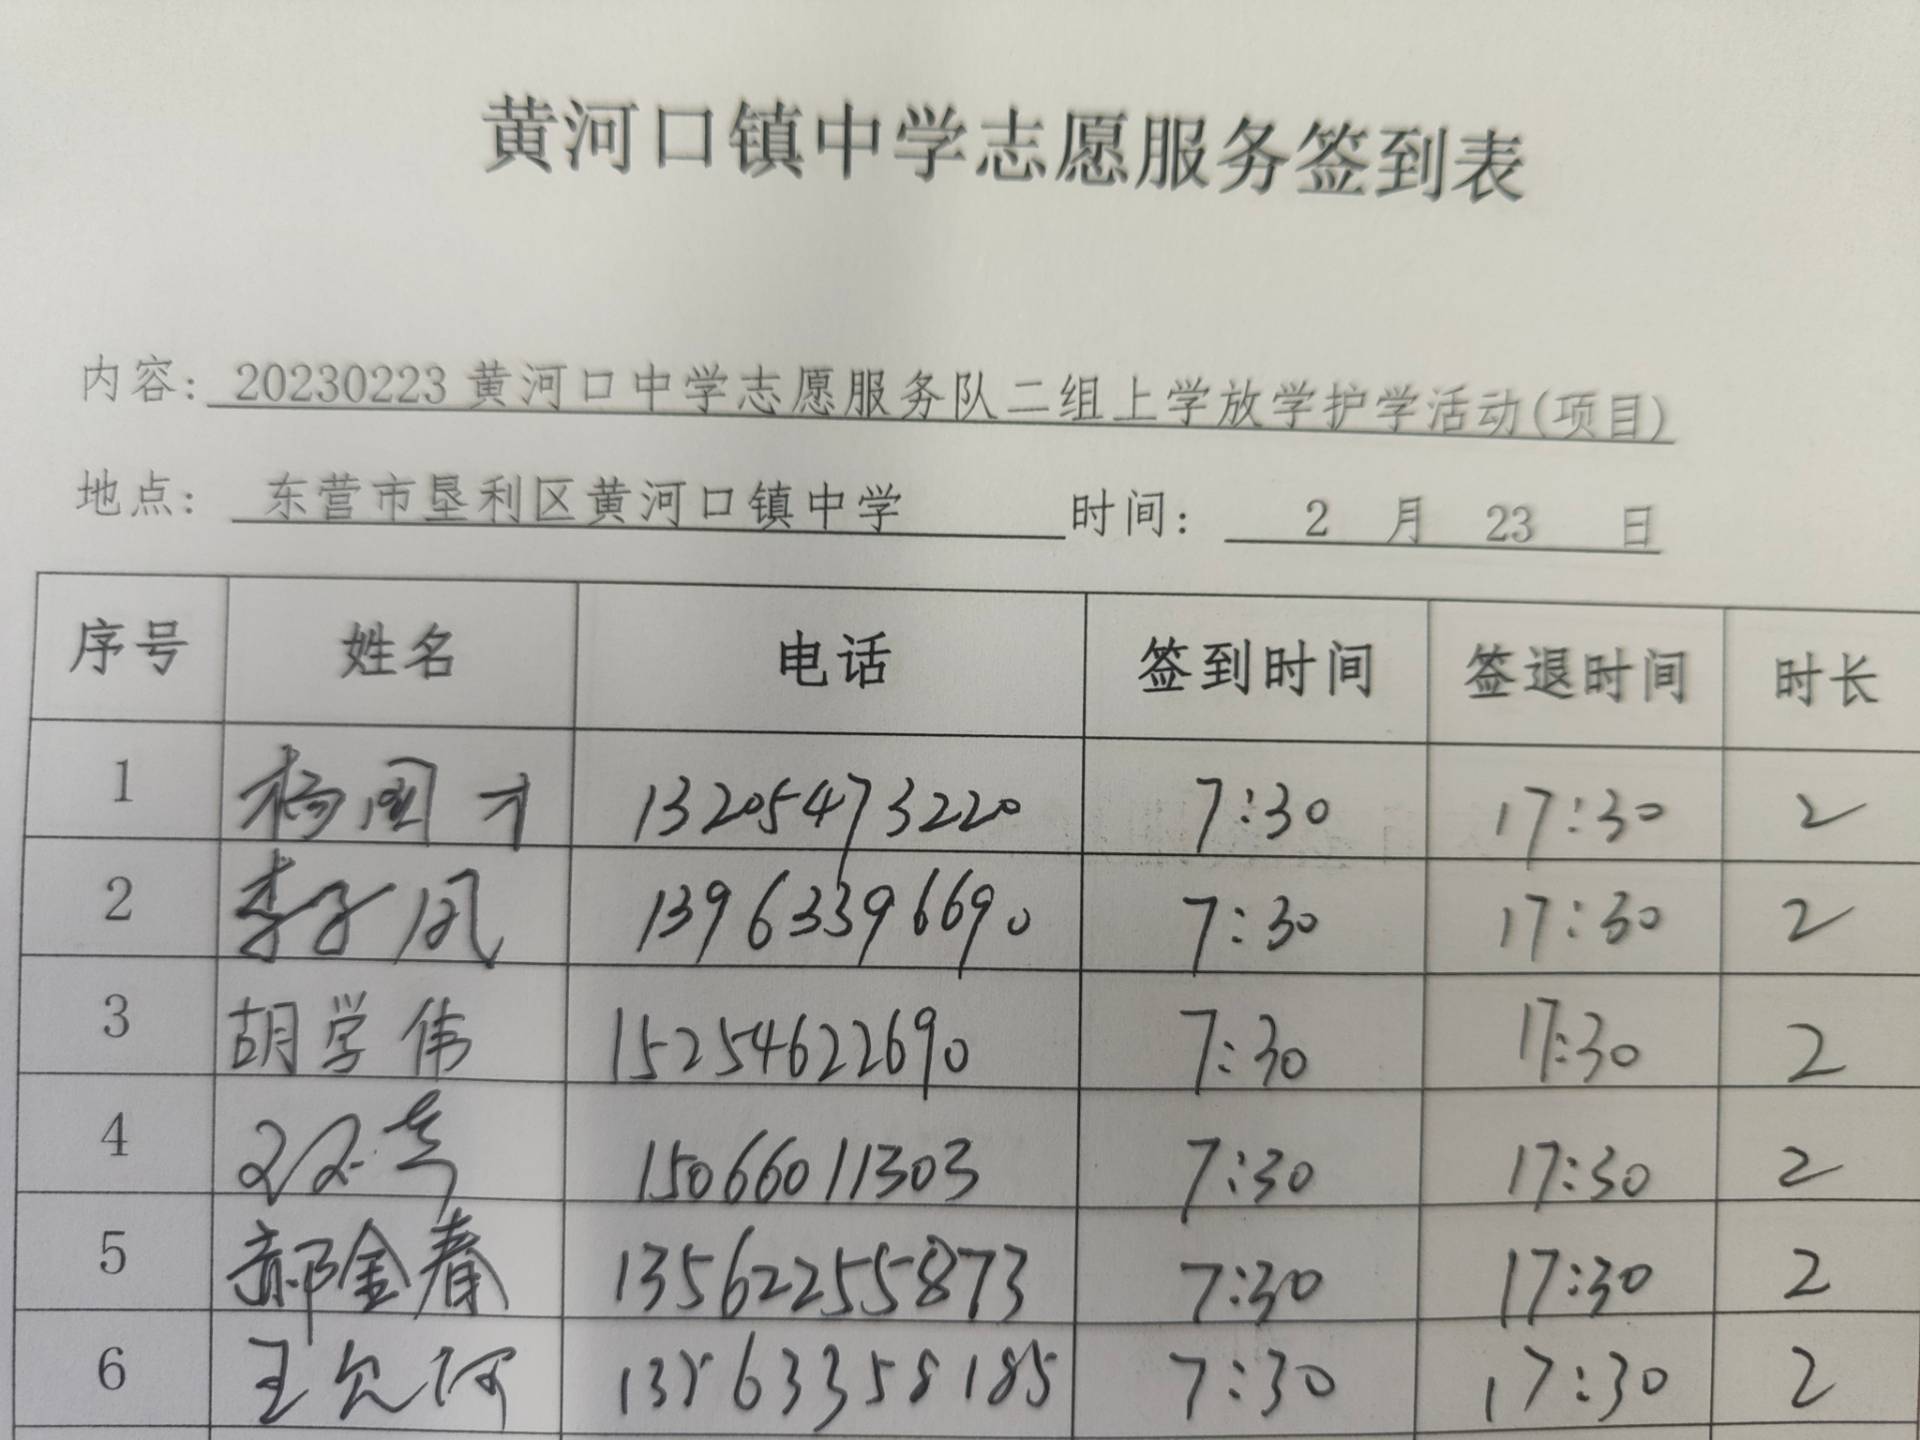 黄河口镇中学志愿服务签到表
内容: 20230223 黄河口中学志愿服务队二组上学放学护学活动(项目)
地点: 东营市垦利区黄河口镇中学 时间: 2 月 23 日
序号 姓名 电话 签到时间 签退时间 时长
1 杨国才 13205473220 7:30 17:30 2
2 李子凤 13963396690 7:30 17:30 2
3 胡学伟 15254622690 7:30 17:30 2
4 15066011303 7:30 17:30 2
5 郝金春 13562255873 7:30 17:30 2
6 王 河 7:30 17:30 2